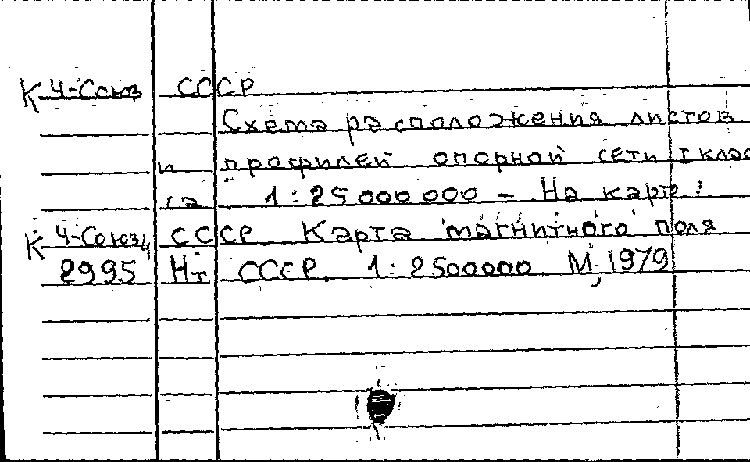 К Ч-Союз СССР
Схема расположения листов
и профилей опорной сети I клас
са 1:25000000 – На карте:
К Ч-Союз СССР Карта магнитного поля
2995 Нт СССР. 1:2500000 М, 1979